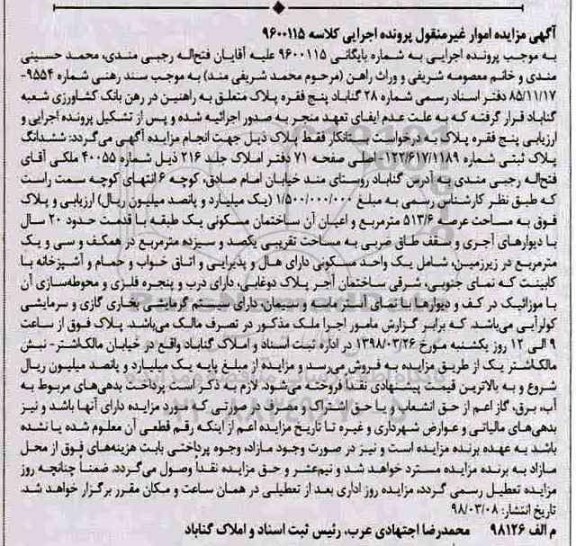 آگهی مزایده اموال غیرمنقول پرونده اجرایی کلاسه ۹۶۰۰۱۱۵
به موجب پرونده اجرایی به شماره بایگانی ۹۶۰۰۱۱۵ علیه آقایان فتح‌اله رجبی مندی، محمد حسینی
مندی و خانم معصومه شریفی و وراث راهن (مرحوم محمد شریفی مند) به موجب سند رهنی شماره ۹۵۵۴-
۸۵/۱۱/۱۷ دفتر اسناد رسمی شماره ۲۸ گناباد پنج فقره پلاک متعلق به راهنین در رهن بانک کشاورزی شعبه
گناباد قرار گرفته که به علت عدم ایفای تعهد منجر به صدور اجرائیه شده و پس از تشکیل پرونده اجرایی و
ارزیابی پنج فقره پلاک به درخواست بستانکار فقط پلاک ذیل جهت انجام مزایده آگهی می‌گردد: ششدانگ
پلاک ثبتی شماره ۱۲۲/۶۱۷/۱۱۸۹- اصلی صفحه ۷۱ دفتر املاک جلد ۲۱۶ ذیل شماره ۴۰۰۵۵ ملکی آقای
فتح‌اله رجبی مندی به آدرس گناباد روستای مند خیابان امام صادق، کوچه ۶ انتهای کوچه سمت راست
که طبق نظر کارشناس رسمی به مبلغ ۱/۵۰۰/۰۰۰/۰۰۰ (یک میلیارد و پانصد میلیون ریال) ارزیابی و پلاک
فوق به مساحت عرصه ۵۱۳/۶ مترمربع و اعیان آن ساختمان مسکونی یک طبقه با قدمت حدود ۲۰ سال
با دیوارهای آجری و سقف طاق ضربی به مساحت تقریبی یکصد و سیزده مترمربع در همکف و سی و یک
مترمربع در زیرزمین، شامل یک واحد مسکونی دارای هال و پذیرایی و اتاق خواب و حمام و آشپزخانه با
کابینت که نمای جنوبی، شرقی ساختمان آجر پلاک دوغابی، دارای درب و پنجره فلزی و محوطه‌سازی آن
با موزائیک در کف و دیوارها با نمای آستر ماسه و سیمان، دارای سیستم گرمایشی بخاری گازی و سرمایشی
کولرآبی می‌باشد. که برابر گزارش مامور اجرا ملک مذکور در تصرف مالک می‌باشد. پلاک فوق از ساعت
۹ الی ۱۲ روز یکشنبه مورخ ۱۳۹۸/۰۳/۲۶ در اداره ثبت اسناد و املاک گناباد واقع در خیابان مالک‌اشتر- نبش
مالک‌اشتر یک از طریق مزایده به فروش می‌رسد و مزایده از مبلغ پایه یک میلیارد و پانصد میلیون ریال
شروع و به بالاترین قیمت پیشنهادی نقداً فروخته می‌شود. لازم به ذکر است پرداخت بدهی‌های مربوط به
آب، برق، گاز اعم از حق انشعاب و یا حق اشتراک و مصرف در صورتی که مورد مزایده دارای آنها باشد و نیز
بدهی‌های مالیاتی و عوارض شهرداری و غیره تا تاریخ مزایده اعم از اینکه رقم قطعی آن معلوم شده یا نشده
باشد به عهده برنده مزایده است و نیز در صورت وجود مازاد، وجوه پرداختی بابت هزینه‌های فوق از محل
مازاد به برنده مزایده مسترد خواهد شد و نیم‌عشر و حق مزایده نقداً وصول می‌گردد. ضمناً چنانچه روز
مزایده تعطیل رسمی گردد، مزایده روز اداری بعد از تعطیلی در همان ساعت و مکان مقرر برگزار خواهد شد.
تاریخ انتشار: ۹۸/۰۳/۰۸
م الف ۹۸۱۲۶ محمدرضا اجتهادی عرب، رئیس ثبت اسناد و املاک گناباد